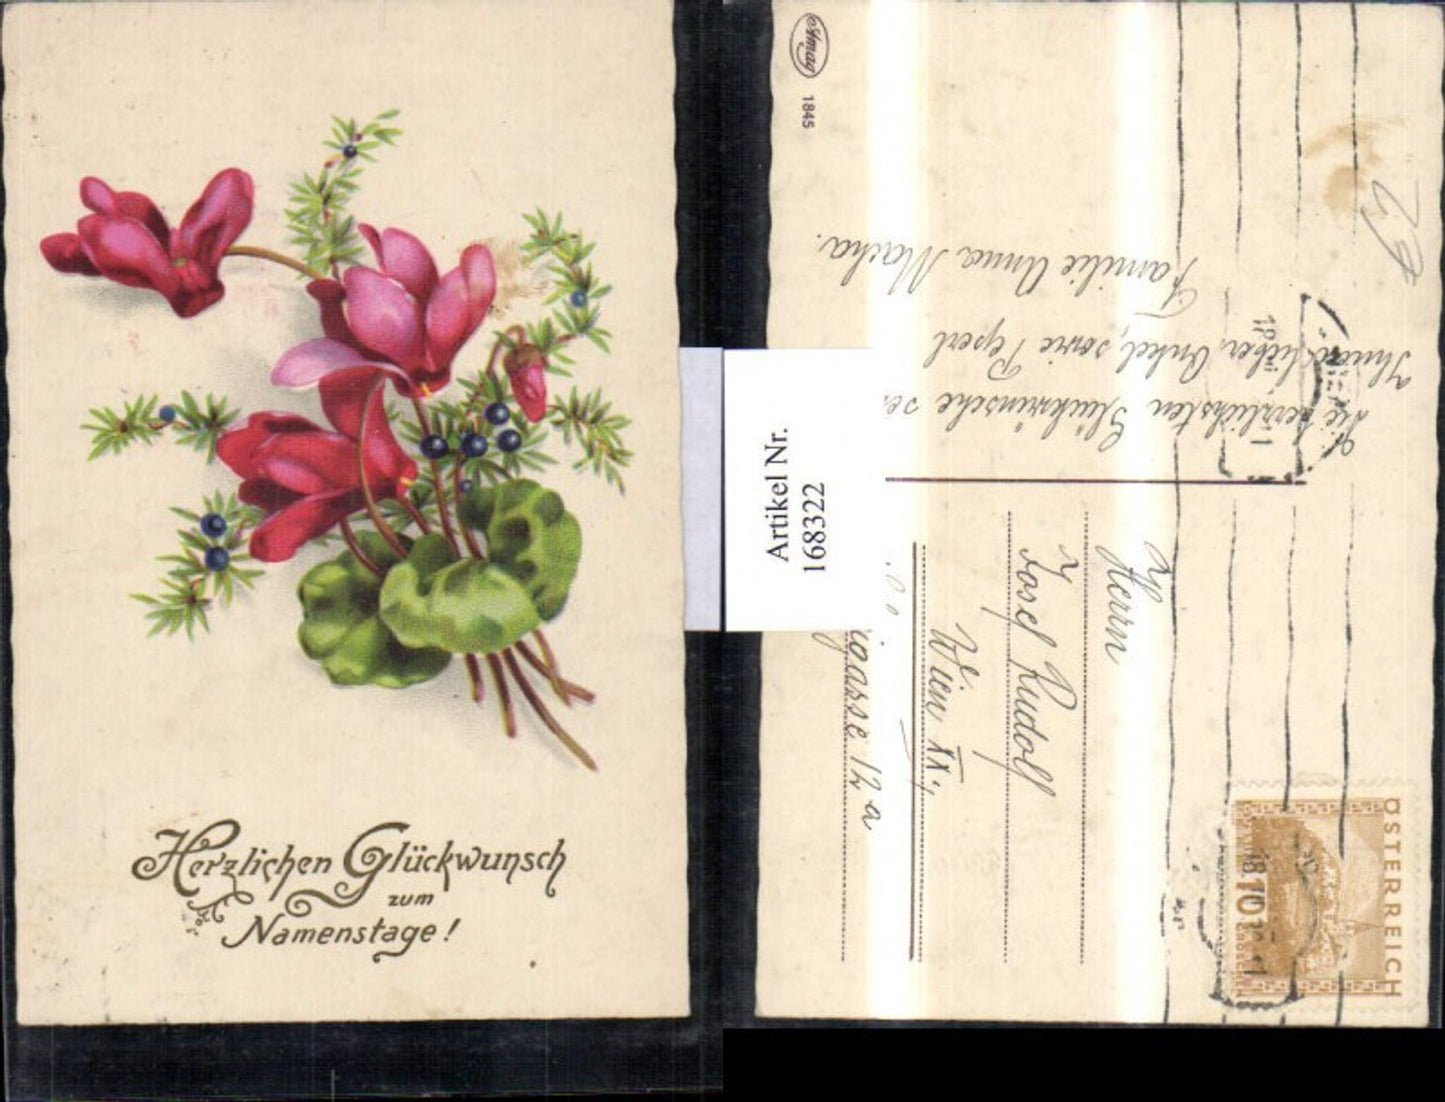 Herzlichen Glückwunsch
zum
Namenstage!
Artikel Nr.
168322
Amag
1845
Die herzlichsten Glückwünsche
lieber Onkel, sowie Peperl
Familie Anna Macha.
Herrn
Josef Rudolf
Wien XX.,
gasse 12 a
ÖSTERREICH
10
GROSCHEN